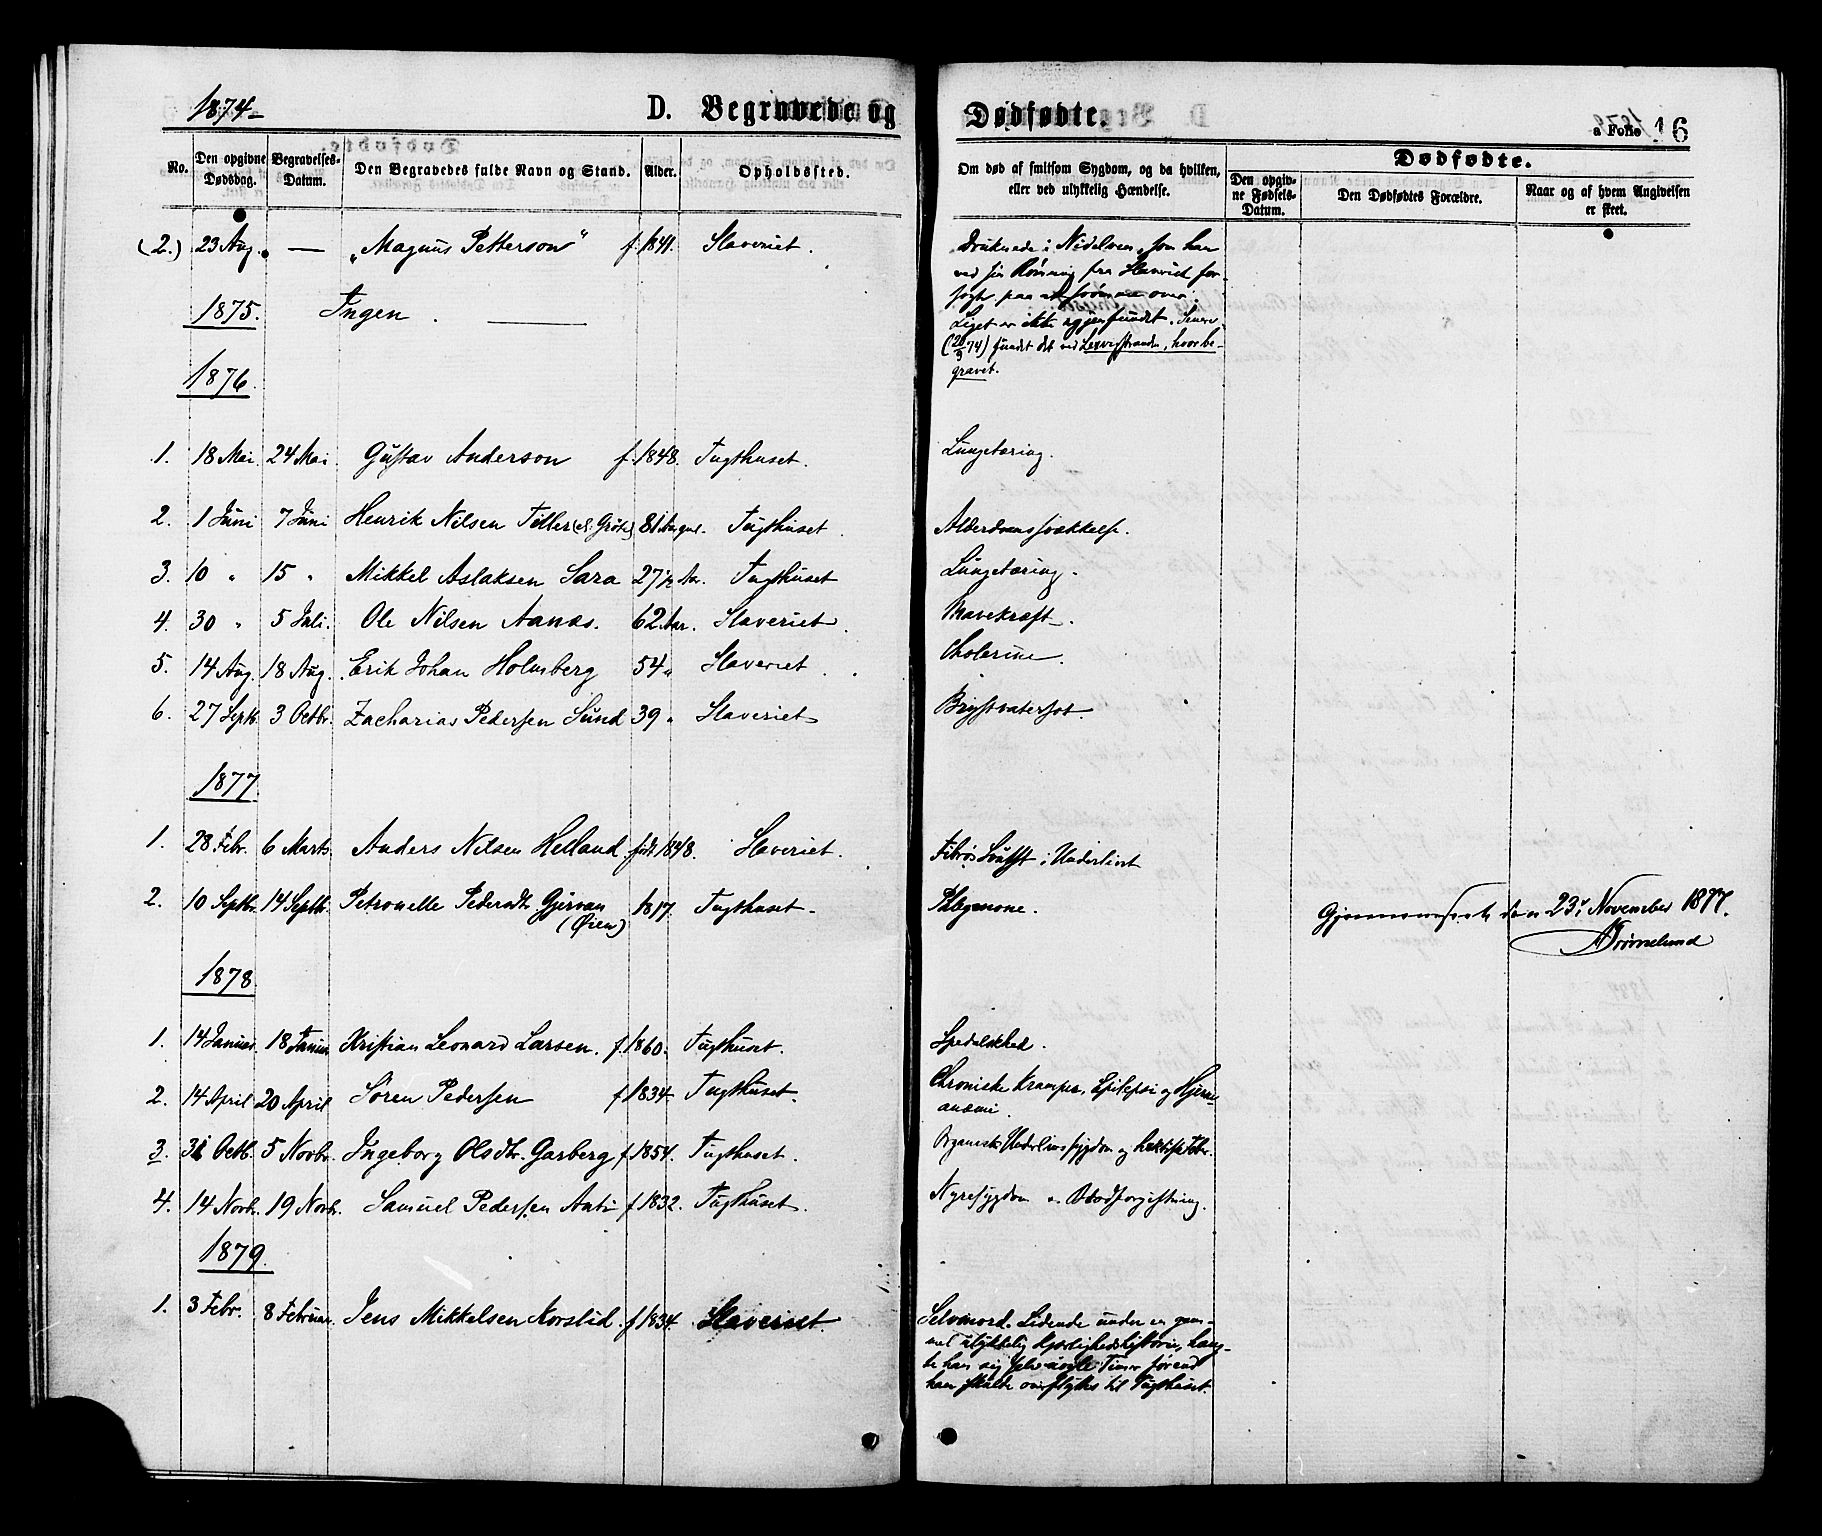 1874
D. Begravede og Dødfødte.
a Folio 16
No.
Den opgivne Dødsdag.
Begravelses-Datum.
Den Begravedes fulde Navn og Stand.
Alder.
Opholdssted.
Om død af smitsom Sygdom, og da hvilken, eller ved ulykkelig Hændelse.
Dødfødte.
Den opgivne Fødsels-Datum.
Den Dødfødtes Forældre.
Naar og af hvem Angivelsen er skeet.
(2.) 23 Aug. — „Magnus Petterson" f. 1841. Slaveriet.
Druknede i Nidelven, som han
ved sin Rømning fra Slaveriet for-
søgte paa at svømme over.
Liget er ikke igjenfundet. Senere
(20/9 74) fundet det ved Lexvigstranden, hvor be-
gravet.
1875.
Ingen.
1876.
1. 18 Mai 24 Mai Gustav Anderson f. 1848. Tugthuset. Lungetæring.
2. 1 Juni 7 Juni Henrik Nilsen Tiller 81 Aar gul. Tugthuset. Alderdomssvækkelse.
3. 10 " 15 " Mikkel Aslaksen Sara 27 1/2 Aar. Tugthuset Lungetæring.
4. 30 " 5 Juli. Ole Nilsen Aanes. 62 Aar. Slaveriet. Mavekræft.
5. 14 Aug. 18 Aug. Erik Johan Holmberg 54 " Slaveriet. Cholerine.
6. 27 Septb. 3 Octbr. Zacharias Pedersen Sund 39 " Slaveriet Brystvatersot.
1877.
1. 28 Febr. 6 Marts Anders Nilsen Helland født 1848. Slaveriet. Fibrøs Svulst i Underlivet
2. 10 Septbr. 14 Septbr. Petronelle Pedersdtr. Gjervan 1817. Tugthuset. Phlegmone.
(Øien)
Gjennemseet den 23de November 1877.
1878.
1. 14 Januar. 18 Januar Kristian Leonard Larsen. f. 1860. Tugthuset. Spedalskhed.
2. 14 April 20 April Sören Pedersen f 1834. Tugthuset. Chroniske Kramper, Epilepsi og Hjerne-
anæmi.
3. 31 Octb. 5 Novbr. Ingeborg Olsdtr. Garberg f 1854. Tugthuset. Organisk Underlivssygdom og hektisk Feber.
4. 14 Novb. 19 Novb. Samuel Pedersen Anti f 1832. Tugthuset. Nyresygdom o. Blodforgiftning.
1879.
1. 3 Febr. 8 Februar Jens Mikkelsen Korslid. f 1834. Slaveriet. Selvmord. Lidende under en gam-
mel ulykkelig Kjærlighedshistorie, hæng-
te han sig selv nogle Timer førend
han skulde overflyttes til Tugthuset.